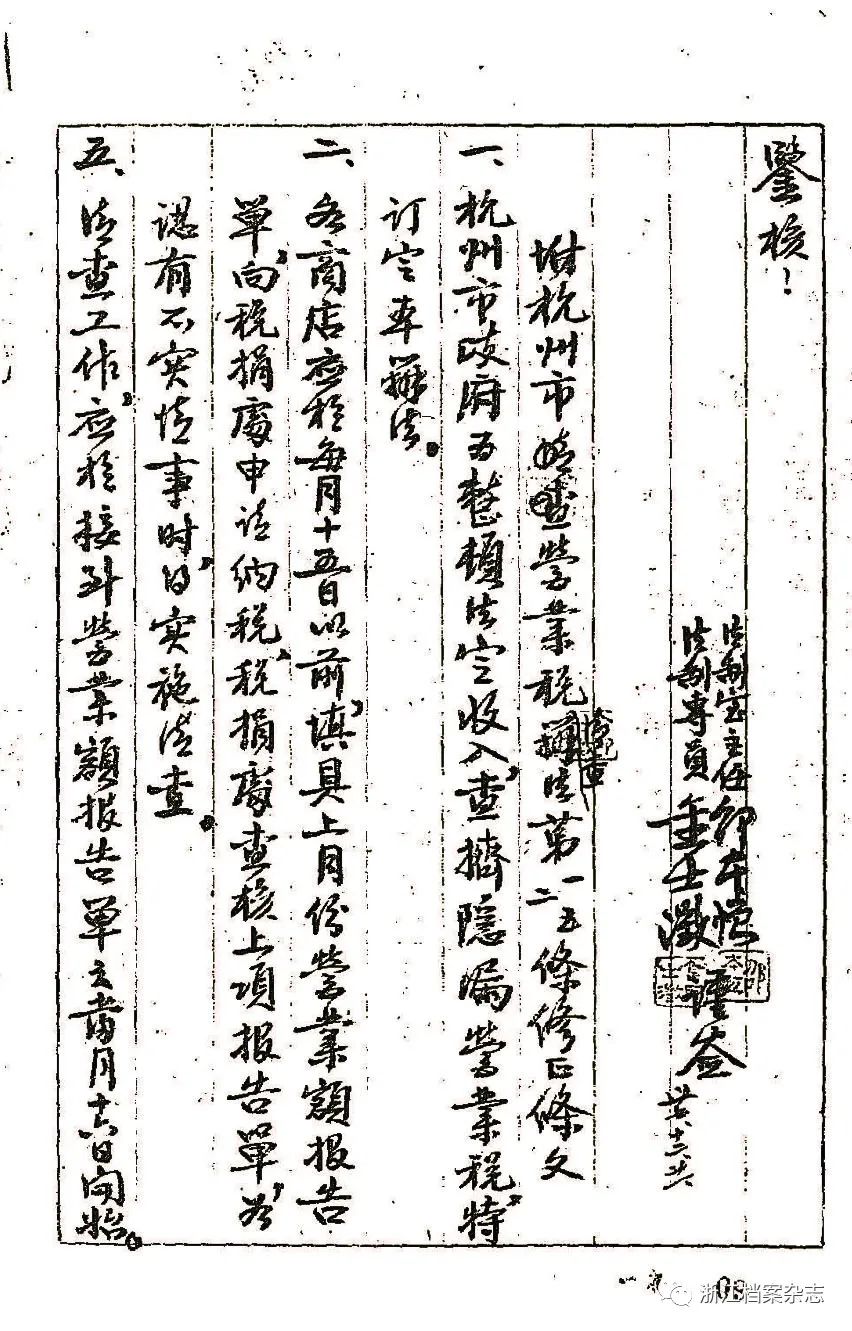 鑒核！
法制室主任
法制專員
謹簽
附杭州市清查營業稅辦法第一二五條修正條文
一、杭州市政府为整頓法定收入，查擠隱漏營業稅，特
訂定本辦法。
二、各商店應於每月十五日以前，填具上月份營業額报告
單，向稅捐處申請納稅，稅捐處查核上項报告單，若
認有不实情事時，得实施清查。
五、清查工作，應於接到營業額报告單之當月十六日開始。
浙江档案杂志